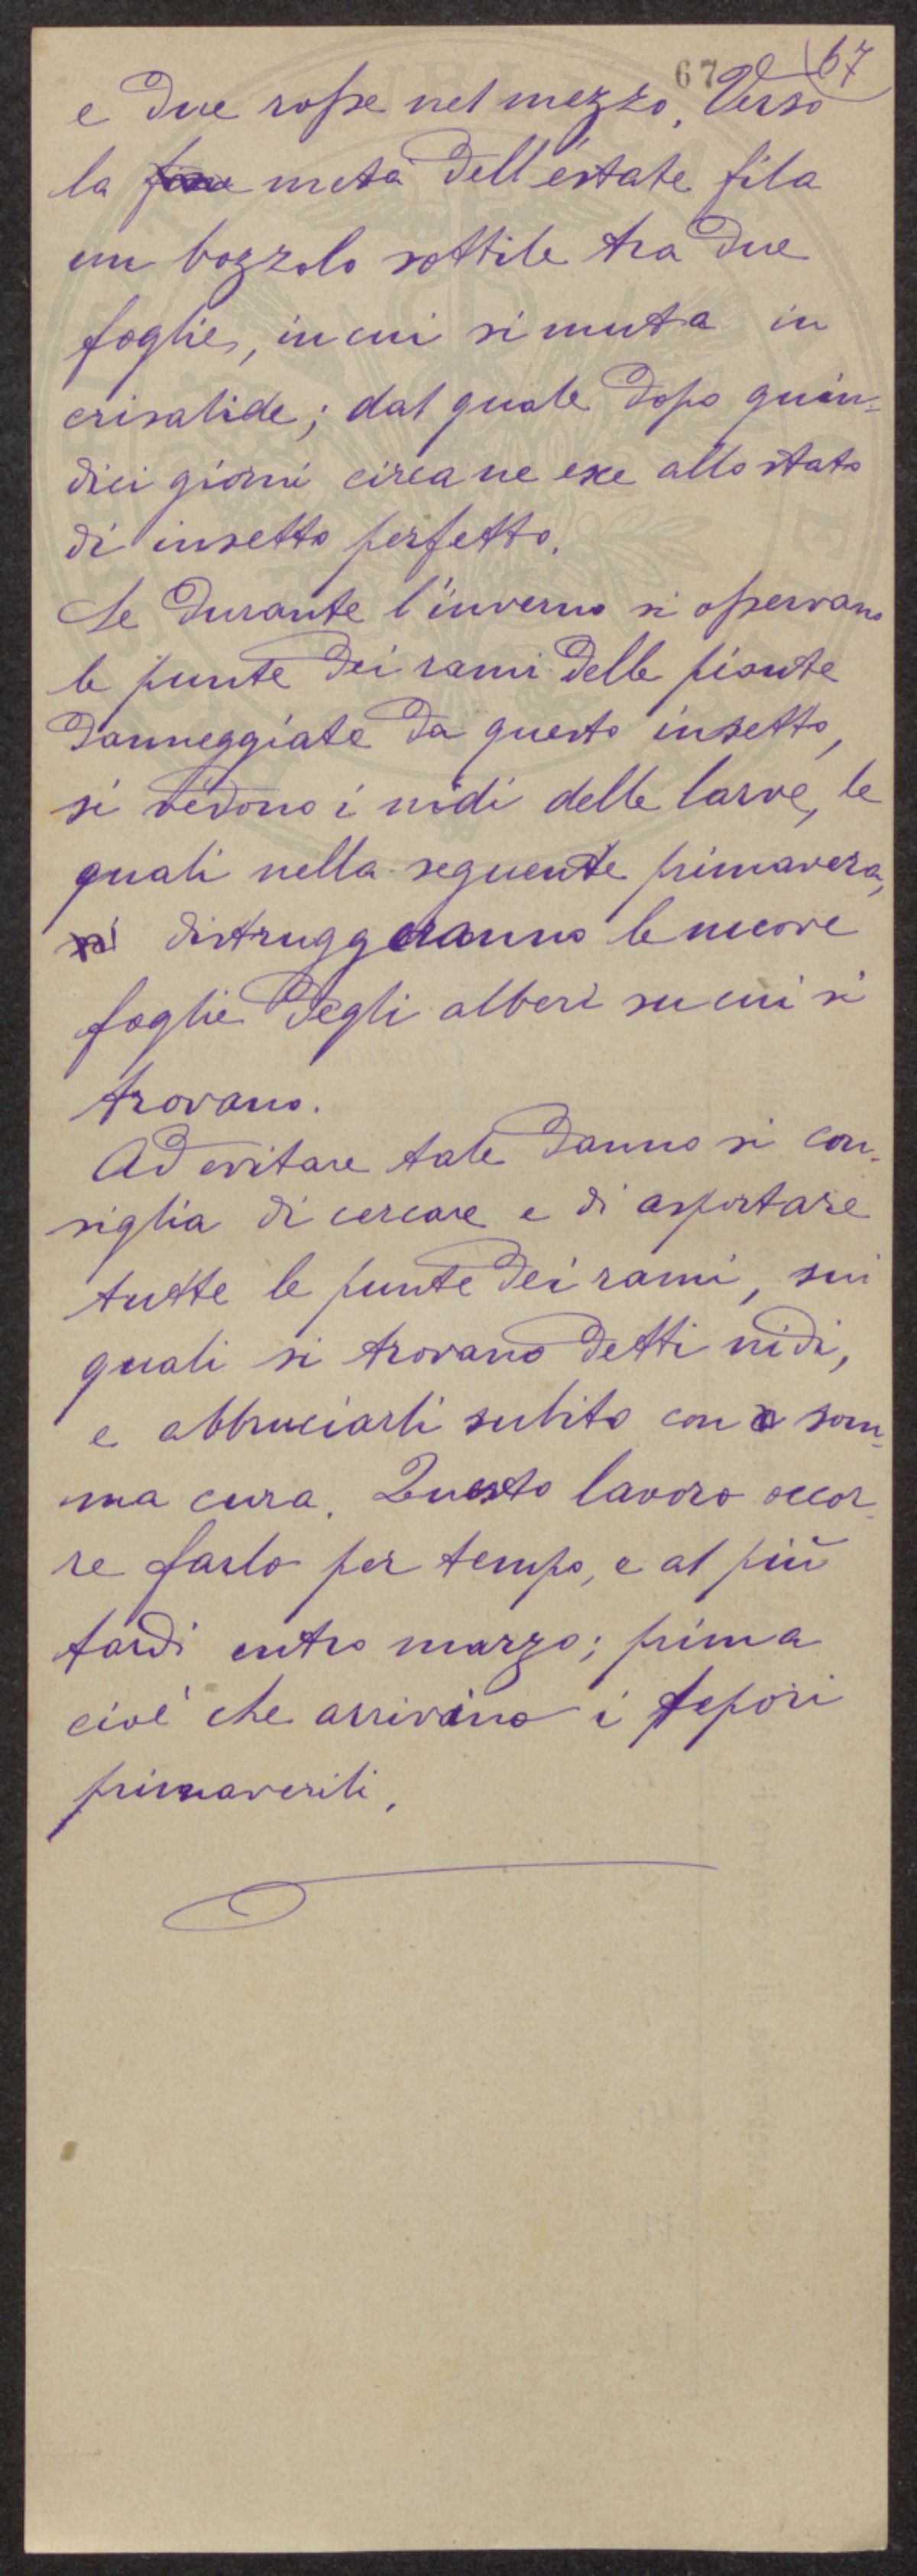 67 67
e due rosse nel mezzo. Verso
la fine metà dell'estate fila
un bozzolo sottile tra due
foglie, in cui si muta in
crisalide; dal quale dopo quin=
dici giorni circa ne esce allo stato
di insetto perfetto.
Se durante l'inverno si osservano
le punte dei rami delle piante
danneggiate da questo insetto,
si vedono i nidi delle larve, le
quali nella seguente primavera,
distruggeranno le nuove
foglie degli alberi su cui si
trovano.
Ad evitare tale danno si con-
siglia di cercare e di asportare
tutte le punte dei rami, sui
quali si trovano detti nidi,
e abbruciarli subito con som-
ma cura. Questo lavoro occor-
re farlo per tempo, e al più
tardi entro marzo; prima
cioè che arrivino i tepori
primaverili.